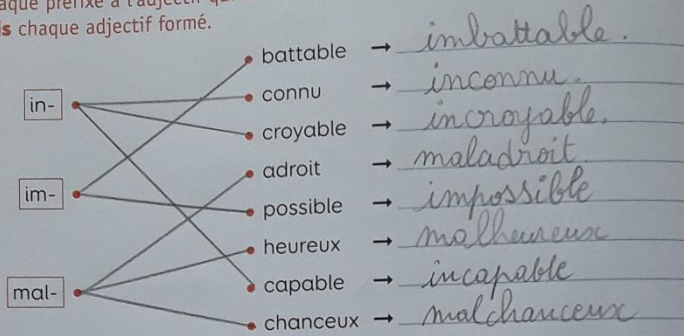 aque préfixe à l'adjectif
is chaque adjectif formé.
battable → imbattable.
in- connu → inconnu.
croyable → incroyable.
adroit → maladroit
im- possible → impossible
heureux → malheureux
mal- capable → incapable
chanceux → malchanceux